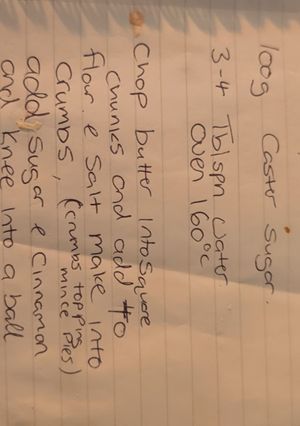 100g Castor Sugar.
3-4 Tblspn Water
Oven 160°C
Chop butter into square
chunks and add to
flour & Salt make into
Crumbs, (crumbs topping
mince pies)
add sugar & Cinnamon
and knee into a ball